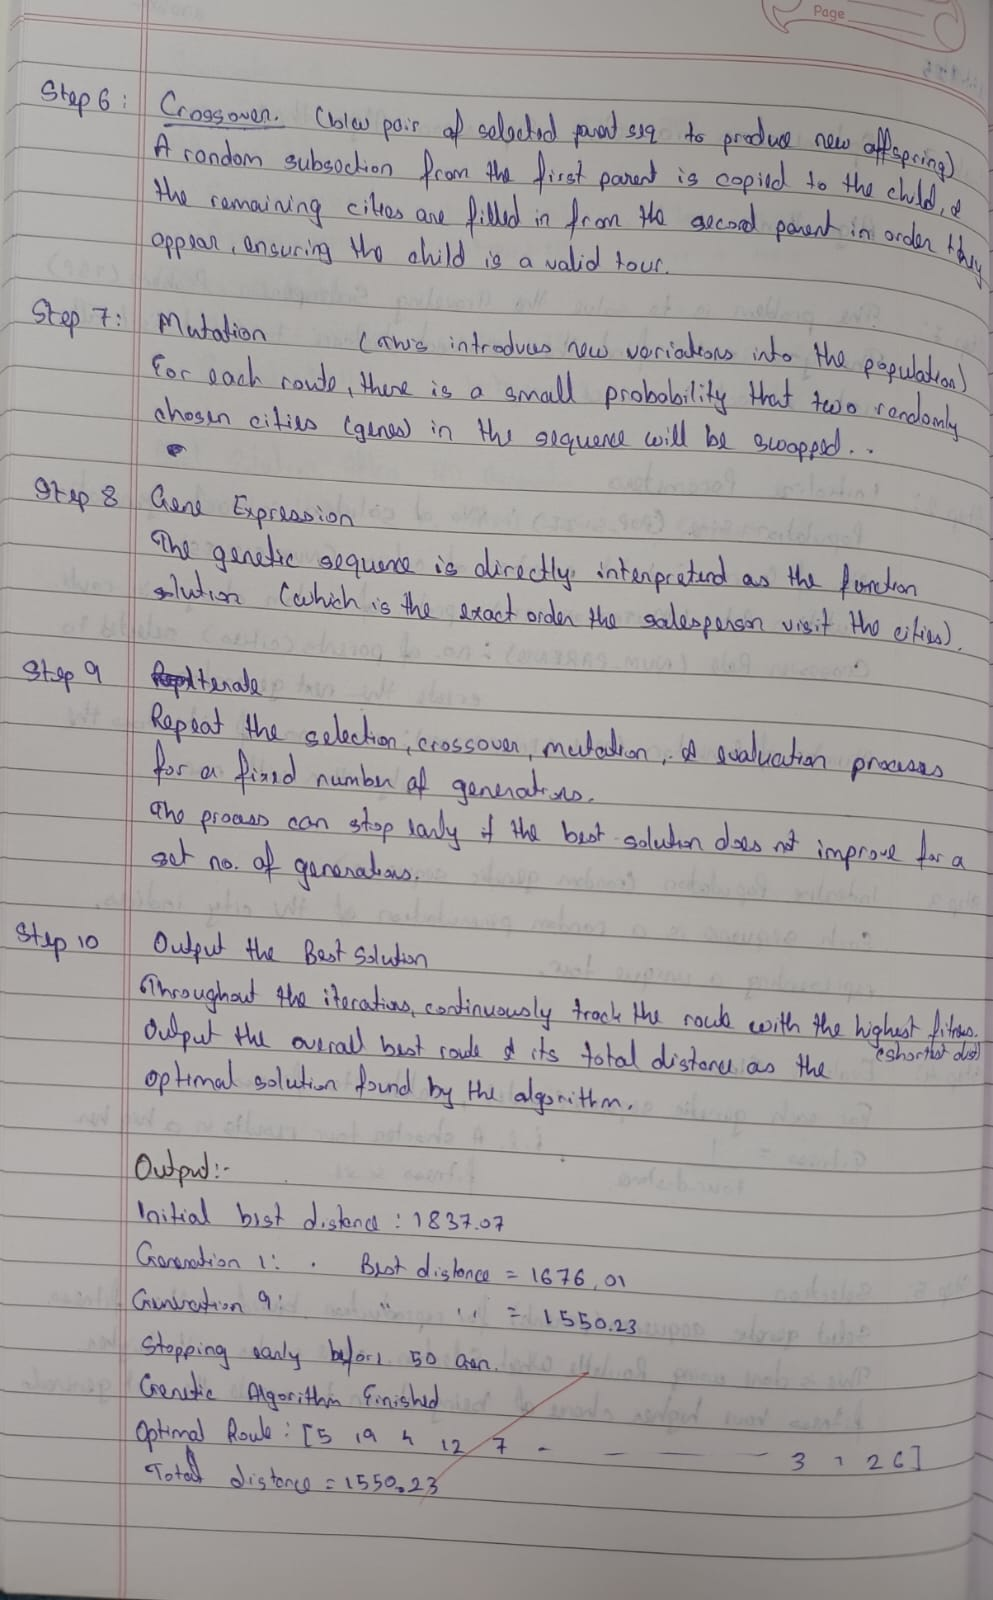 Page
Step 6: Crossover. (b/w pair of selected parent seq to produce new offspring)
A random subsection from the first parent is copied to the child, &
the remaining cities are filled in from the second parent in order they
appear, ensuring the child is a valid tour.
Step 7: Mutation (this introduces new variations into the population)
For each route, there is a small probability that two randomly
chosen cities (genes) in the sequence will be swapped..
Step 8 Gene Expression
The genetic sequence is directly interpreted as the function
solution (which is the exact order the salesperson visit the cities).
Step 9 Iterate
Repeat the selection, crossover, mutation, & evaluation processes
for a fixed number of generations.
The process can stop early if the best solution does not improve for a
set no. of generations.
Step 10 Output the Best Solution
Throughout the iterations, continuously track the route with the highest fitness.
(shortest dist)
Output the overall best route & its total distance as the
optimal solution found by the algorithm.
Output:-
Initial best distance : 1837.07
Generation 1: . Best distance = 1676.01
Generation 9: " " = 1550.23
Stopping early before 50 Gen.
Genetic Algorithm Finished
Optimal Route : [5 19 4 12 7 - — — — 3 1 2 6]
Total distance = 1550.23